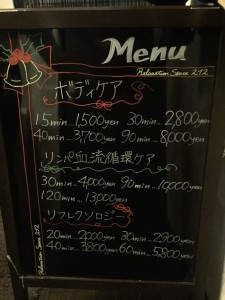 Menu
Relaxation Space 212
ボディケア
15min...1,500yen 30min...2,800yen
40min...3,700yen 90min...8,000yen
リンパ血流循環ケア
30min...4,000yen 90min...10,000yen
120min...13,000yen
リフレクソロジー
20min...2,000yen 30min...2,900yen
40min...3,800yen 60min...5,800yen
Relaxation Space 212